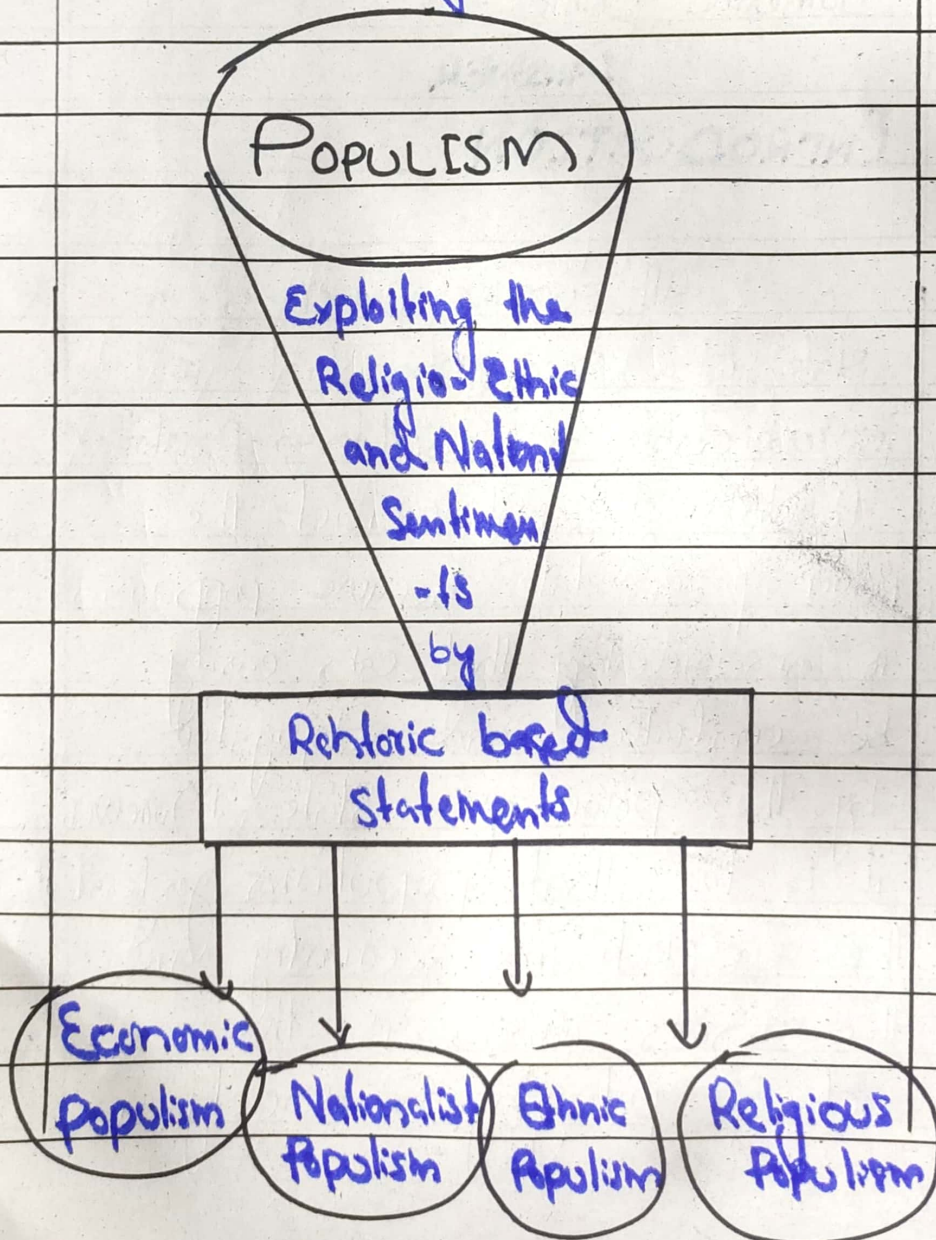 POPULISM
Exploiting the
Religio-Ethic
and Nationl
Sentimen
-ts
by
Rehtoric based
statements
Economic
populism
Nationalist
Populism
Ethnic
Populism
Religious
Populism